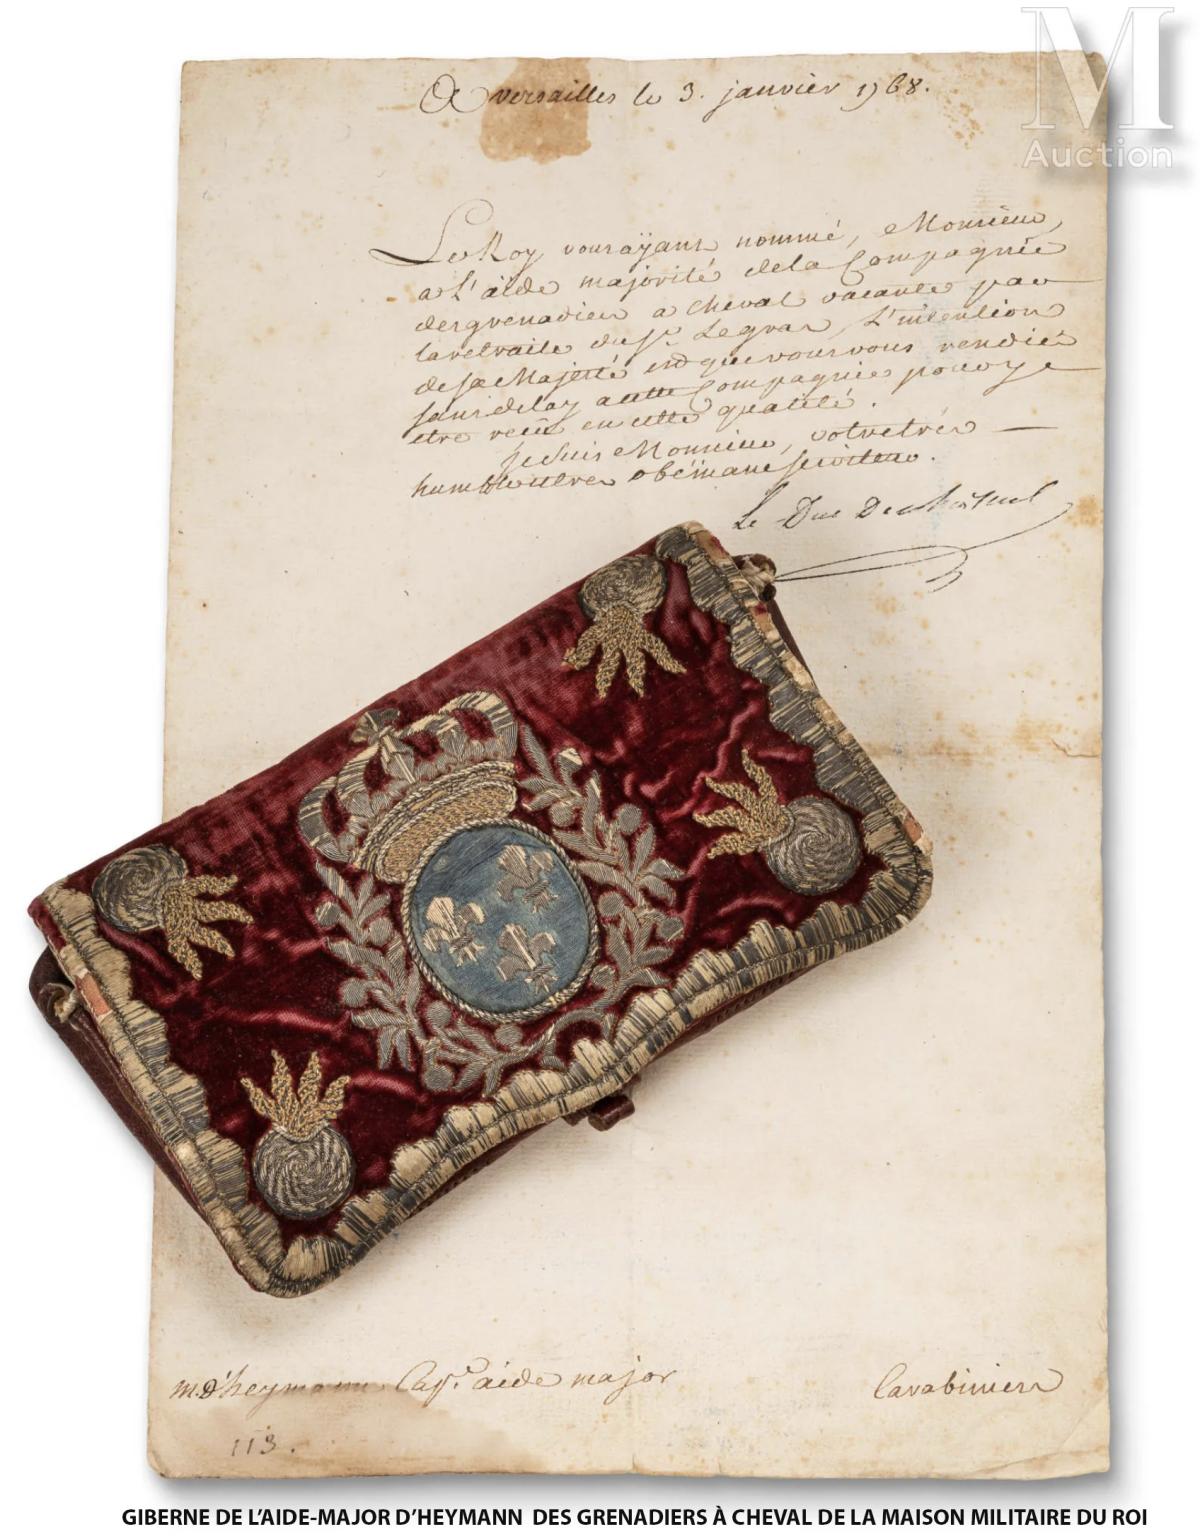 M
Auction
A versailles le 3. janvier 1768.
Le Roy vous aÿant nommé, Monsieur,
a L'aide majorité de la Compagnie
des grenadiers a cheval vacante par
la retraite du Sr. Legras, L'intention
de Sa Majesté est que vous vous rendiés
sans delay a cette Compagnie pour y
etre recû en cette qualité.
Je suis Monsieur, votre trés
humble et tres obéissant serviteur.
Le Duc
m. d'heymann Capne. aide major
Carabiniers
113.
GIBERNE DE L'AIDE-MAJOR D'HEYMANN DES GRENADIERS À CHEVAL DE LA MAISON MILITAIRE DU ROI